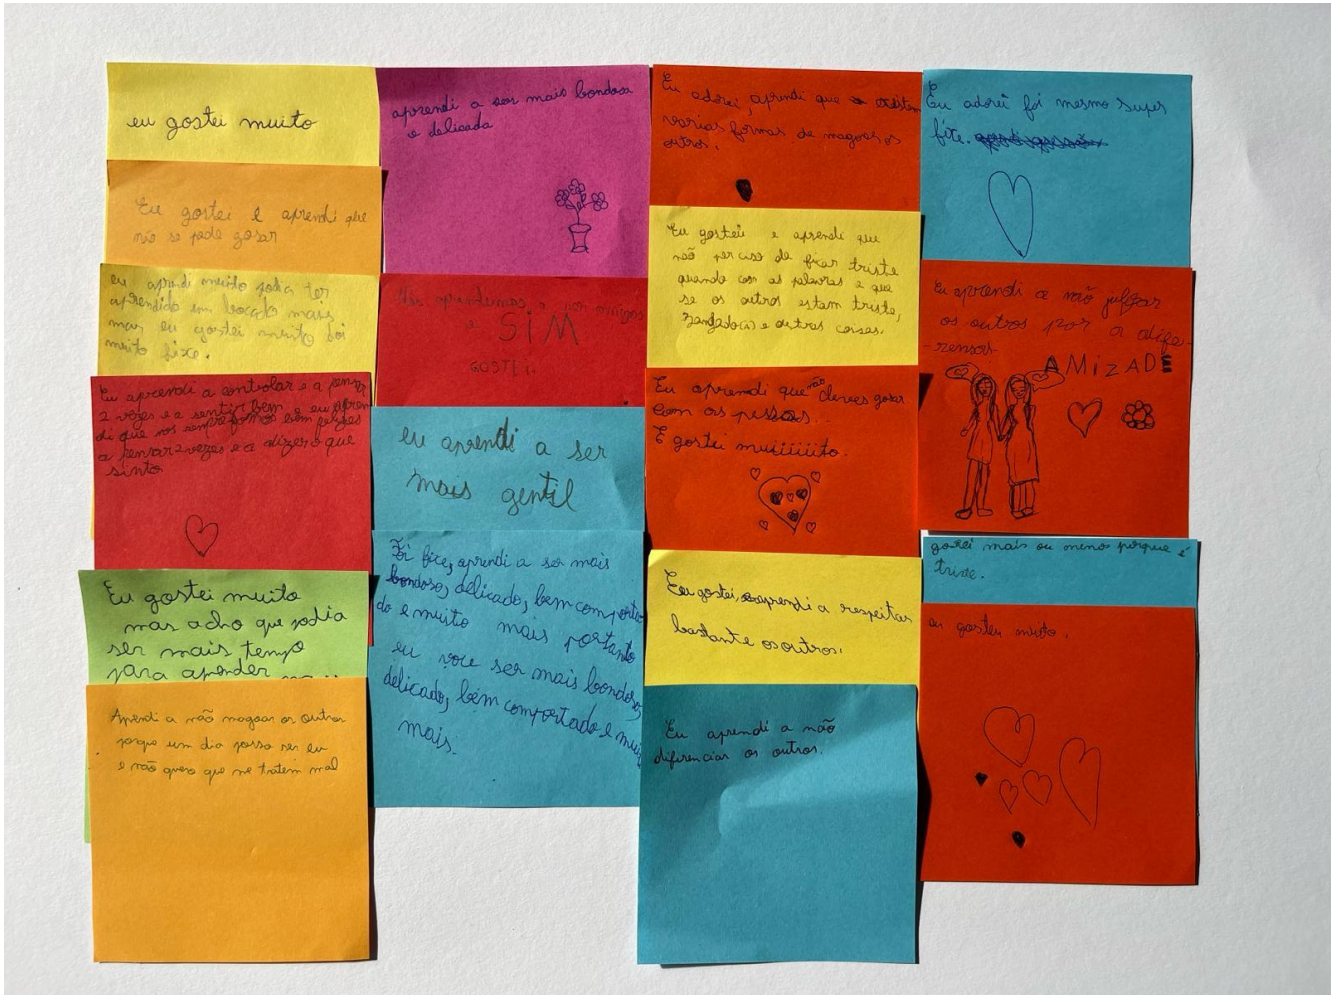 eu gostei muito
Eu gostei e aprendi que
não se pode gosar
eu aprendi muito podia ter
aprendido um bocado mais
mas eu gostei muito foi
muito fixe.
Eu aprendi a controlar e a pensar
2 vezes e a sentir bem e eu apren
di que nos sempre fomos bem
a pensar 2 vezes e a dizer o que
sinto
Eu gostei muito
mas acho que podia
ser mais tempo
para aprender
Aprendi a não magoar os outros
porque um dia posso ser eu
e não quero que me tratem mal
aprendi a ser mais bondosa
e delicada
Nós aprendemos
e
SiM
GOSTEi
eu aprendi a ser
mais gentil
Foi fixe, aprendi a ser mais
bondoso, delicado, bem comporta
do e muito mais portanto
eu vou ser mais bondoso,
delicado, bem comportado e muito
mais.
Eu adorei, aprendi que existem
varias formas de magoar os
outros.
Eu gostei e aprendi que
não perciso de ficar triste
quando com as palavras e que
se os outros estam triste,
zangado(s) e outras coisas.
Eu aprendi que não deves gosar
com as pessoas...
E gostei muiiiiiito.
Eu gostei, aprendi a respeitar
bastante os outros.
Eu aprendi a não
diferenciar os outros.
Eu adorei foi mesmo super
fixe.
Eu aprendi a não julgar
os outros por a dife-
-rensas-
AMiZADE
gostei mais ou menos porque é
triste.
eu gostei muito.